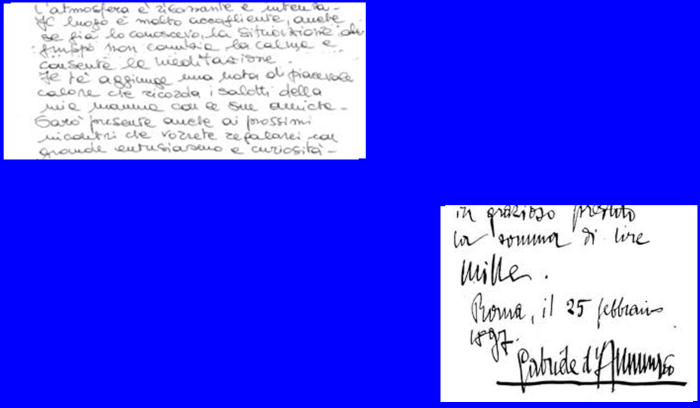 L'atmosfera è rilassante e intensa-
Il luogo è molto accogliente, anche
se già lo conoscevo, la situazione di
gruppo non cambia la calma e
consente la meditazione.
Il tè aggiunge una nota di piacevole
calore che ricorda i salotti della
mia mamma con le sue amiche-
Sarò presente anche ai prossimi
incontri che vorrete regalarci con
grande entusiasmo e curiosità-
in grazioso prestito
la somma di lire
mille.
Roma, il 25 febbraio
1897.
Gabriele d'Annunzio